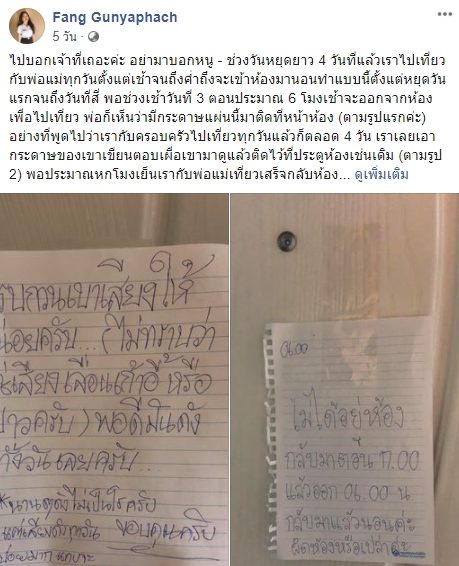 Fang Gunyaphach
5 วัน ·
ไปบอกเจ้าที่เถอะค่ะ อย่ามาบอกหนู - ช่วงวันหยุดยาว 4 วันที่แล้วเราไปเที่ยว
กับพ่อแม่ทุกวันตั้งแต่เช้าจนถึงค่ำถึงจะเข้าห้องมานอนทำแบบนี้ตั้งแต่หยุดวัน
แรกจนถึงวันที่สี่ พอช่วงเช้าวันที่ 3 ตอนประมาณ 6 โมงเช้าจะออกจากห้อง
เพื่อไปเที่ยว พ่อก็เห็นว่ามีกระดาษแผ่นนี้มาติดที่หน้าห้อง (ตามรูปแรกค่ะ)
อย่างที่พูดไปว่าเรากับครอบครัวไปเที่ยวทุกวันแล้วก็ตลอด 4 วัน เราเลยเอา
กระดาษของเขาเขียนตอบเผื่อเขามาดูแล้วติดไว้ที่ประตูห้องเช่นเดิม (ตามรูป
2) พอประมาณหกโมงเย็นเรากับพ่อแม่เที่ยวเสร็จกลับห้อง... ดูเพิ่มเติม
รบกวนเบาเสียงให้
หน่อยครับ... (ไม่ทราบว่า
เสียงเลื่อนเก้าอี้ หรือ
เปล่าครับ) พอดีมันดัง
ทั้งวันเลยครับ...
*นานๆดังไม่เป็นไรครับ
แต่เสียงดังทุกวัน ขอบคุณครับ
บ่อยมาก
06.00
ไม่ได้อยู่ห้อง
กลับมาตอน 17.00
แล้วออก 06.00 น.
กลับมาแล้วนอนค่ะ
ผิดห้องหรือเปล่าคะ